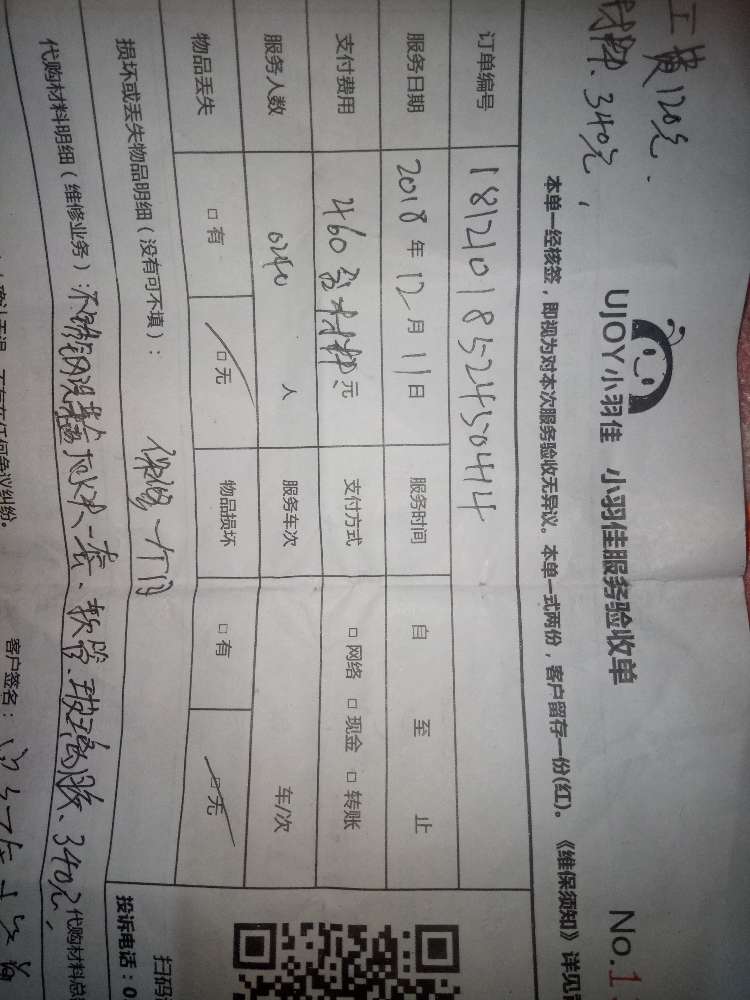 工费120元、
材料、340元，
UJOY小羽佳 小羽佳服务验收单 No.1
本单一经核签，即视为对本次服务验收无异议。本单一式两份，客户留存一份(红)。《维保须知》详见
订单编号 1812101852450414
服务日期 2018年12月11日 服务时间 自 至 止
支付费用 460含材料、元 支付方式 □网络 □现金 □转账
服务人数 人 服务车次 车/次
物品丢失 □有 □无 物品损坏 □有 □无
损坏或丢失物品明细（没有可不填）： 保修一个月
代购材料明细（维修业务）：不锈钢洗 一套、软管、玻璃胶、340元， 代购材料总
不存在任何争议纠纷。 客户签名：
扫码
投诉电话：0